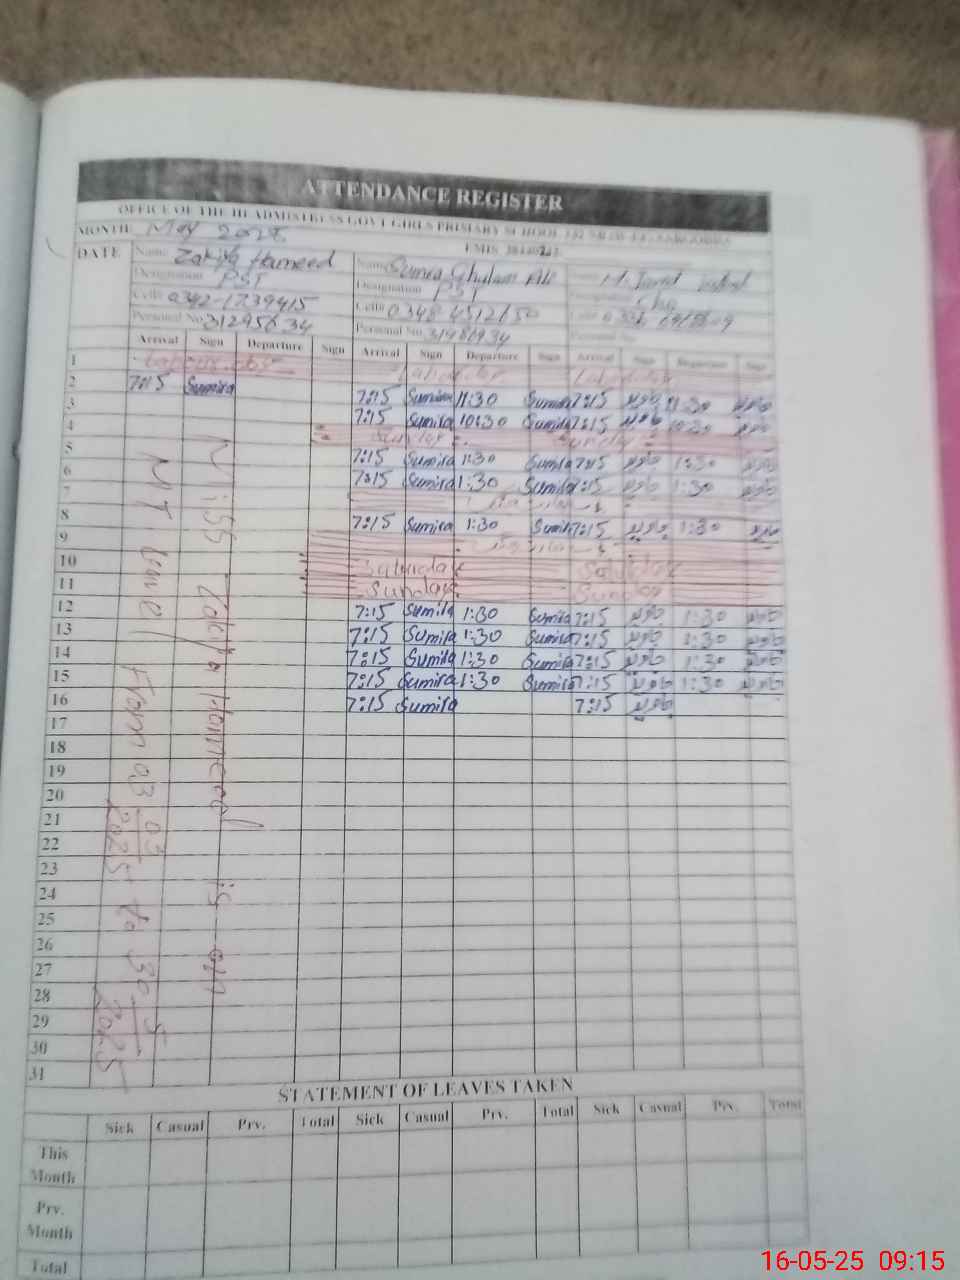 ATTENDANCE REGISTER
OFFICE OF THE HEADMISTRESS GOVT GIRLS PRIMARY SCHOOL
MONTH May
EMIS
DATE Name Zakiya Hameed Name Sumra Ghulam
Designation PST Designation PST
Cell# 0342-1739415 Cell# 0348
Personal No. 31295634 Personal No.
Arrival Sign Departure Sign Arrival Sign Departure Sign Arrival Sign Departure Sign
1
2 7:15 Sumira
3 7:15 Sumira 11:30 Sumira 7:15 جاوید 11:30 جاوید
4 7:15 Sumira 10:30 Sumira 7:15 جاوید 10:30 جاوید
Sunday Sunday
5 7:15 Sumira 1:30 Sumira 7:15 جاوید 1:30 جاوید
6 7:15 Sumira 1:30 Sumira 7:15 جاوید 1:30 جاوید
7
8 7:15 Sumira 1:30 Sumira 7:15 جاوید 1:30 جاوید
9
10 Saturday Saturday
11 Sunday Sunday
12 7:15 Sumira 1:30 Sumira 7:15 جاوید 1:30 جاوید
13 7:15 Sumira 1:30 Sumira 7:15 جاوید 1:30 جاوید
14 7:15 Sumira 1:30 Sumira 7:15 جاوید 1:30 جاوید
15 7:15 Sumira 1:30 Sumira 7:15 جاوید 1:30 جاوید
16 7:15 Sumira 7:15 جاوید
17
18
19
20
21
22
23
24
25
26
27
28
29
30
31
Miss Zakiya Hameed is on
From 03 03 2025 to 30 5 2025
STATEMENT OF LEAVES TAKEN
Sick Casual Prv. Total Sick Casual Prv. Total Sick Casual Prv. Total
This
Month
Prv.
Month
Total
16-05-25 09:15